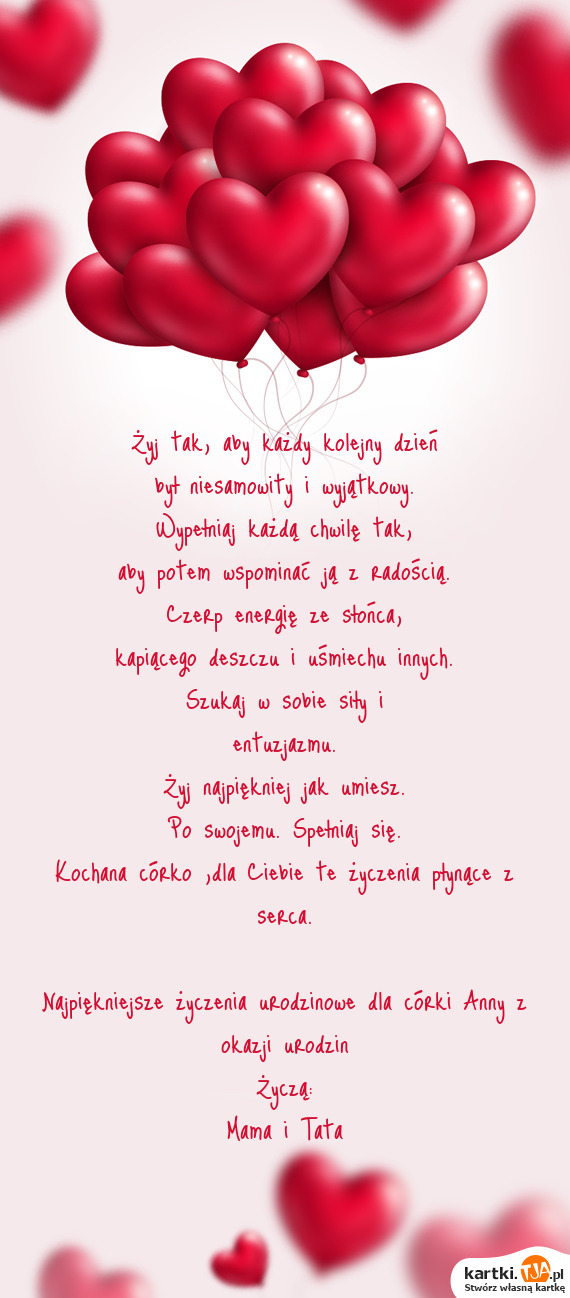 Żyj tak, aby każdy kolejny dzień
był niesamowity i wyjątkowy.
Wypełniaj każdą chwilę tak,
aby potem wspominać ją z radością.
Czerp energię ze słońca,
kapiącego deszczu i uśmiechu innych.
Szukaj w sobie siły i
entuzjazmu.
Żyj najpiękniej jak umiesz.
Po swojemu. Spełniaj się.
Kochana córko ,dla Ciebie te życzenia płynące z
serca.
Najpiękniejsze życzenia urodzinowe dla córki Anny z
okazji urodzin
Życzą:
Mama i Tata
kartki.TJA.pl
Stwórz własną kartkę